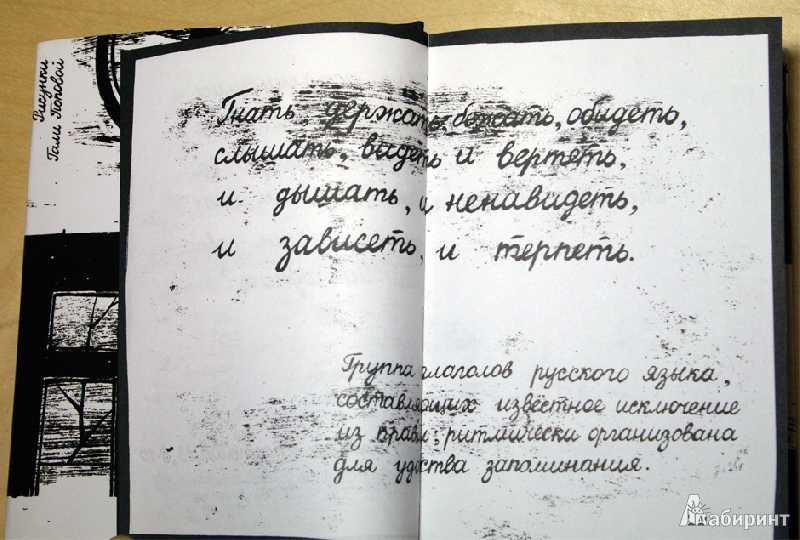 Рисунки
Гали Поповой
Гнать, держать, бежать, обидеть,
слышать, видеть и вертеть,
и дышать, и ненавидеть,
и зависеть, и терпеть.
Группа глаголов русского языка,
составляющих известное исключение
из правил, ритмически организована
для удобства запоминания.
Лабиринт